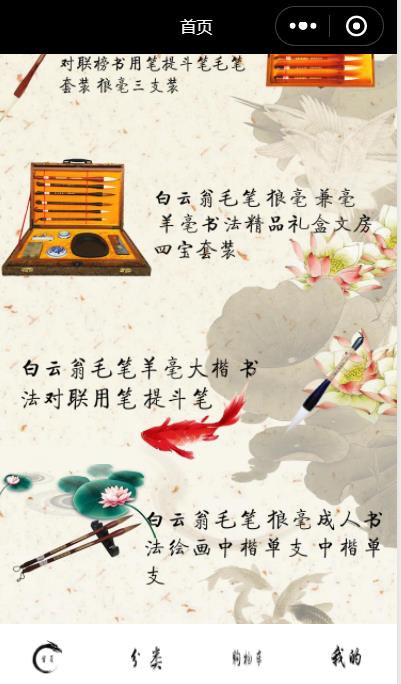 首页
对联榜书用笔提斗笔毛笔
套装 狼毫三支装
白云翁毛笔狼毫 兼毫
羊毫书法精品礼盒文房
四宝套装
白云翁毛笔羊毫大楷 书
法对联用笔提斗笔
白云翁毛笔狼毫成人书
法绘画中楷单支中楷单
支
首页 分类 购物车 我的